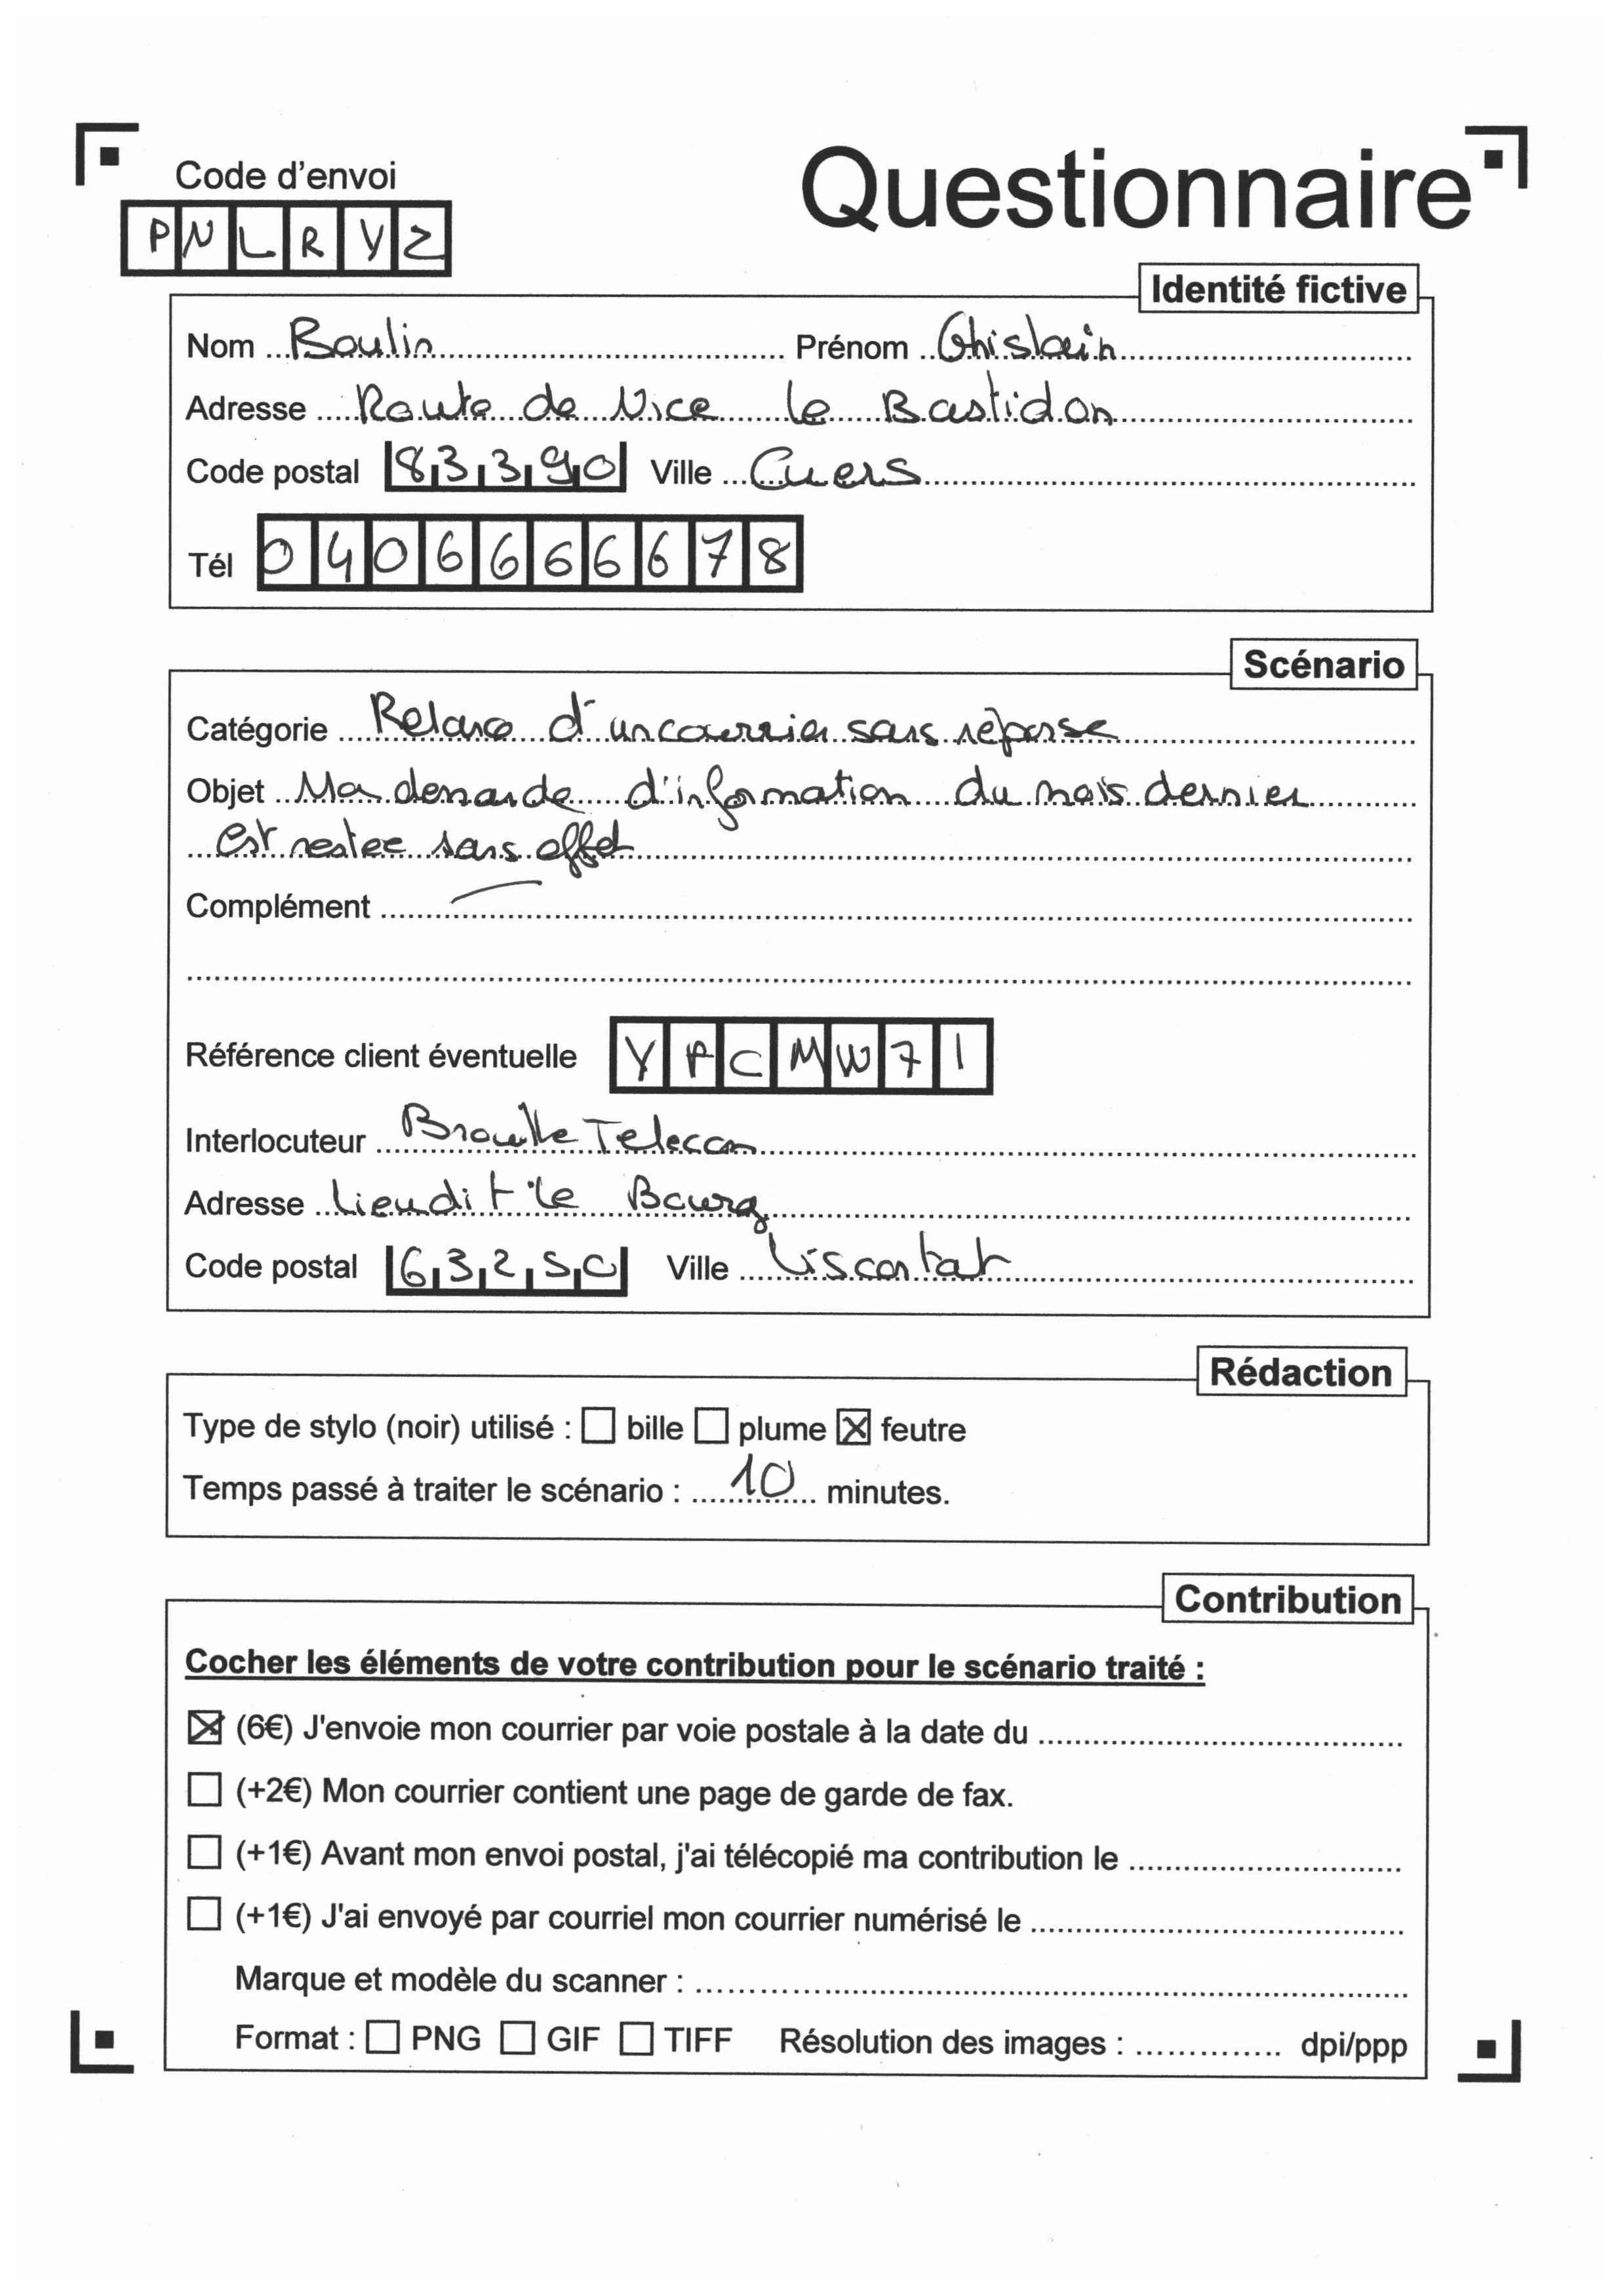 Code d'envoi
Questionnaire
PNLRYZ
Identité fictive
Nom Boulin Prénom Ghislain
Adresse Route de Nice le Bastidon
Code postal 83390 Ville Cuers
Tél 0406666678
Scénario
Catégorie Relance d'un courrier sans réponse
Objet Ma demande d'information du mois dernier
est restee sans effet
Complément
Référence client éventuelle YPCMW71
Interlocuteur Telecom
Adresse Lieudit le Bourg
Code postal 63250 Ville Viscontat
Rédaction
Type de stylo (noir) utilisé : ☐ bille ☐ plume ☒ feutre
Temps passé à traiter le scénario : 10 minutes.
Contribution
Cocher les éléments de votre contribution pour le scénario traité :
☒ (6€) J'envoie mon courrier par voie postale à la date du
☐ (+2€) Mon courrier contient une page de garde de fax.
☐ (+1€) Avant mon envoi postal, j'ai télécopié ma contribution le
☐ (+1€) J'ai envoyé par courriel mon courrier numérisé le
Marque et modèle du scanner :
Format : ☐ PNG ☐ GIF ☐ TIFF Résolution des images : dpi/ppp